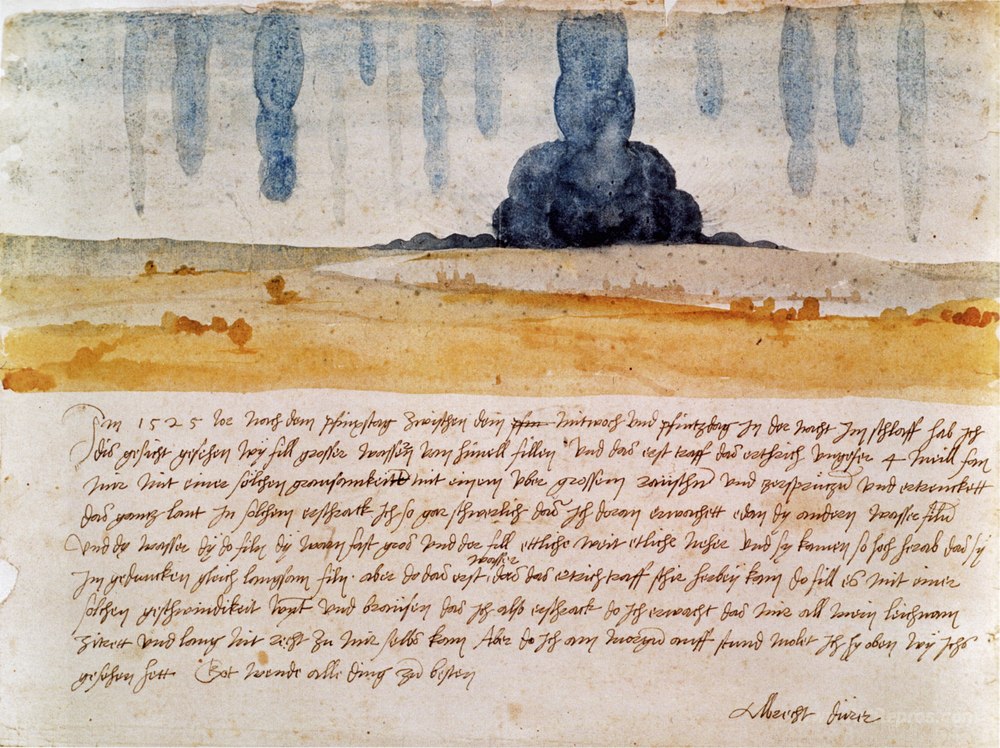 Jm 1525 Jor noch dem pfinxstag zwischen dem pfin Mitwoch und pfintzdag in der nacht im schlaff hab ich
dis gesicht gesehen wy fill grosser wassern vom himell fillen Und das erst traff das erthrich ungefer 4 meill fan
mir mit einer solchen grausamkeitt mit einem uber grossem raüschn und zersprützn und ertrenckett
das gantz lant In solchem erschrack ich so gar schwerlich das ich doran erwachett edan dy andern wasser filn
Und dy wasser dy do filn dy warn fast gros und der fill ettliche weit etliche neher und sy kamen so hoch herab das sy
im gedancken gleich langsam filn. aber do das erst wasser das das ertrich traff schir herbey kam do fill es mit einer
solchen geschwindikeit wynt und braüsen das ich also erschrack do ich erwacht das mir all mein leichnam
zitrett und lang nit recht zu mir selbs kam Aber do ich am morgn auff stund molet ich hy oben wy ichs
gesehen hett Got wende alle ding zu besten
Albrecht dürer